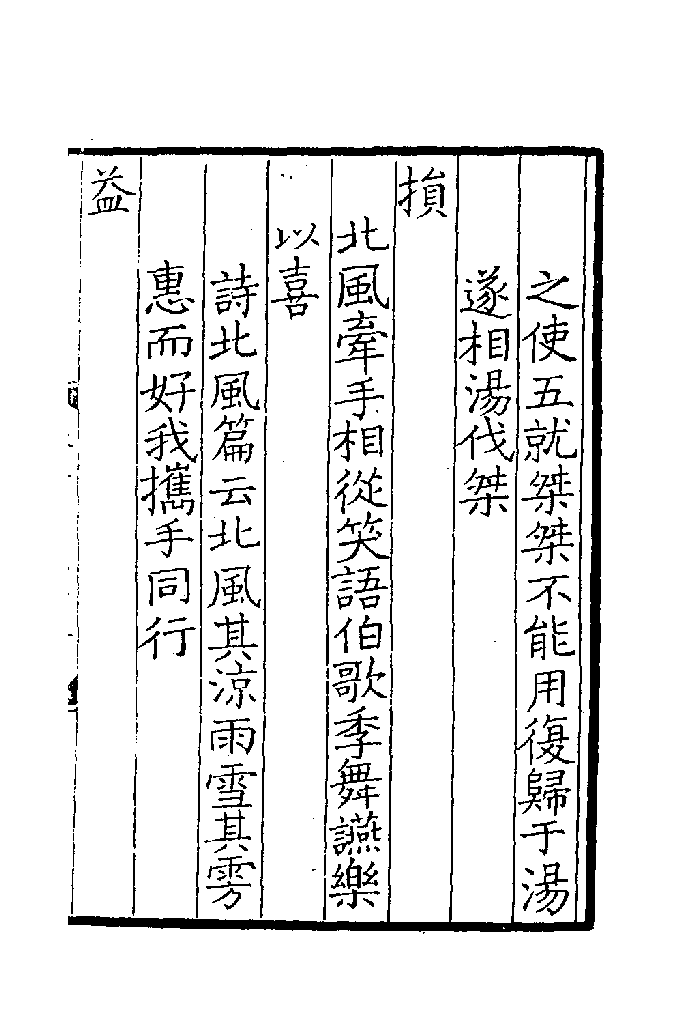 之使五就桀桀不能用復歸于湯
遂相湯伐桀
損
北風牽手相從笑語伯歌季舞讌樂
以喜
詩北風篇云北風其涼雨雪其雱
惠而好我攜手同行
益